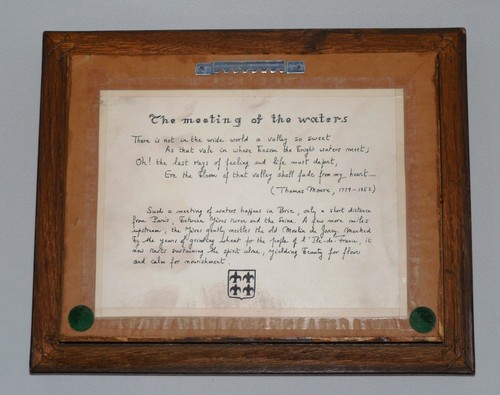 The meeting of the waters
There is not in the wide world a valley so sweet
As that vale in whose bosom the bright waters meet;
Oh! the last rays of feeling and life must depart,
Ere the bloom of that valley shall fade from my heart...
(Thomas Moore, 1779-1852)
Such a meeting of waters happens in Brie, only a short distance
from Paris, between Yerres river and the Seine. A few more miles
upstream, the Yerres gently nestles the old Moulin de Jarcy. Marked
by the years of grinding wheat for the people of l'Ile-de-France, it
now rests sustaining the spirit alone, yielding beauty for flour
and calm for nourishment